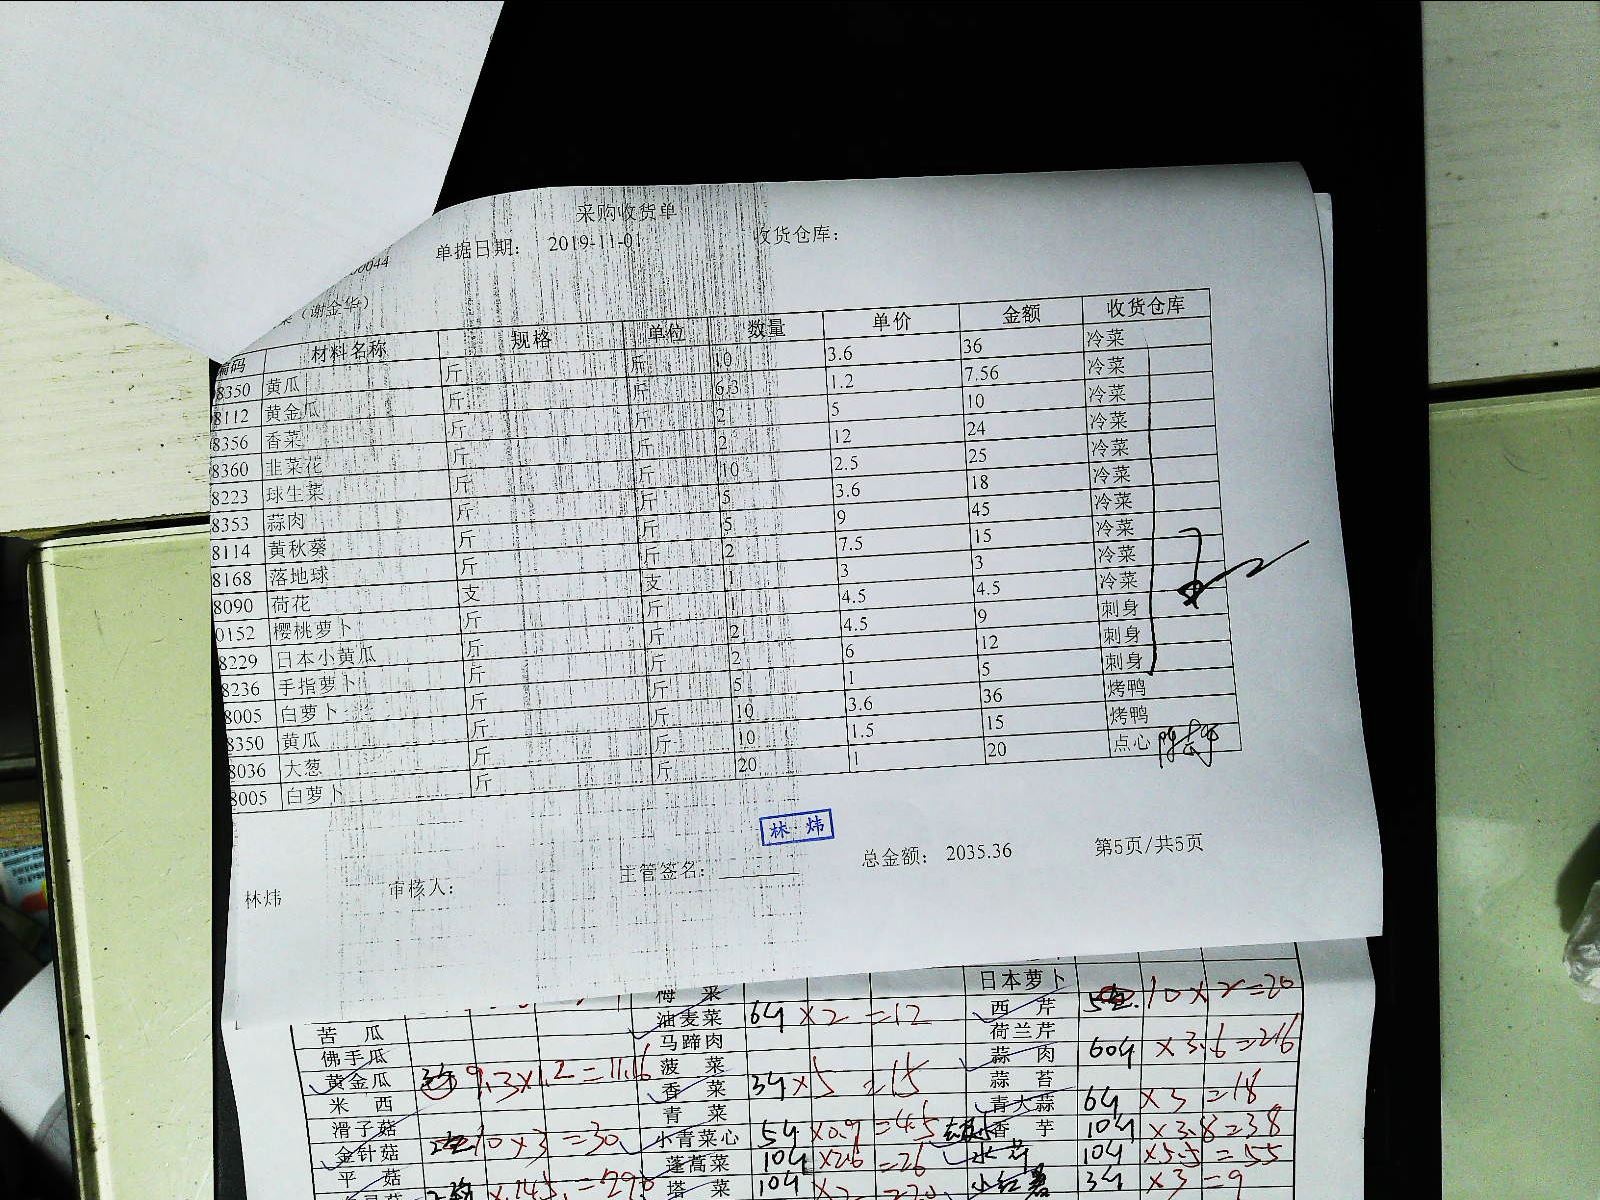 采购收货单
00044 单据日期： 2019-11-01 收货仓库：
（谢金华）
编码 材料名称 规格 单位 数量 单价 金额 收货仓库
8350 黄瓜 斤 斤 10 3.6 36 冷菜
8112 黄金瓜 斤 斤 6.3 1.2 7.56 冷菜
8356 香菜 斤 斤 2 5 10 冷菜
8360 韭菜花 斤 斤 2 12 24 冷菜
8223 球生菜 斤 斤 10 2.5 25 冷菜
8353 蒜肉 斤 斤 5 3.6 18 冷菜
8114 黄秋葵 斤 斤 5 9 45 冷菜
8168 落地球 斤 斤 2 7.5 15 冷菜
8090 荷花 支 支 1 3 3 冷菜
0152 樱桃萝卜 斤 斤 1 4.5 4.5 冷菜
8229 日本小黄瓜 斤 斤 2 4.5 9 刺身
8236 手指萝卜 斤 斤 2 6 12 刺身
8005 白萝卜 斤 斤 5 1 5 刺身
8350 黄瓜 斤 斤 10 3.6 36 烤鸭
8036 大葱 斤 斤 10 1.5 15 烤鸭
8005 白萝卜 斤 斤 20 1 20 点心
林炜
林炜 审核人： 主管签名： 总金额： 2035.36 第5页/共5页
日本萝卜
苦瓜 油麦菜 6斤 ×2 =12 西芹 10×2=20
佛手瓜 马蹄肉 荷兰芹
黄金瓜 9.3×1.2=11.16 菠菜 蒜肉 60斤 ×3.6=216
米西 香菜 3斤×5 =15 蒜苔
滑子菇 青菜 青大蒜 6斤 ×3 =18
金针菇 10×3=30 小青菜心 5斤 ×0.9 =4.5 香芋 10斤 ×3.8=38
平菇 蓬蒿菜 10斤 ×2.6 =26 水芹 10斤 ×5.5=55
×145=290 塔菜 10斤 ×2 =20 小红薯 3斤 ×3 =9